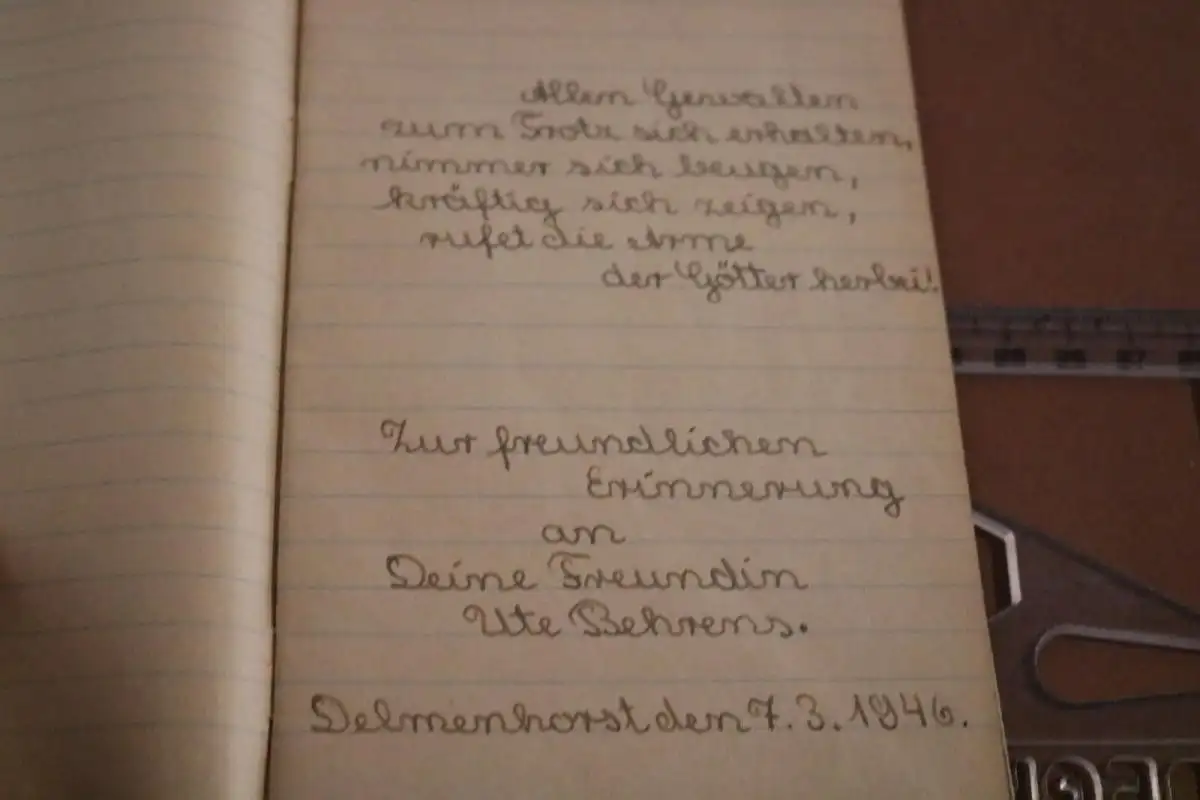 Allen Gewalten
zum Trotz sich erhalten,
nimmer sich beugen,
kräftig sich zeigen,
rufet die Arme
der Götter herbei!
Zur freundlichen
Erinnerung
an
Deine Freundin
Ute Behrens.
Delmenhorst den 7.3.1946.